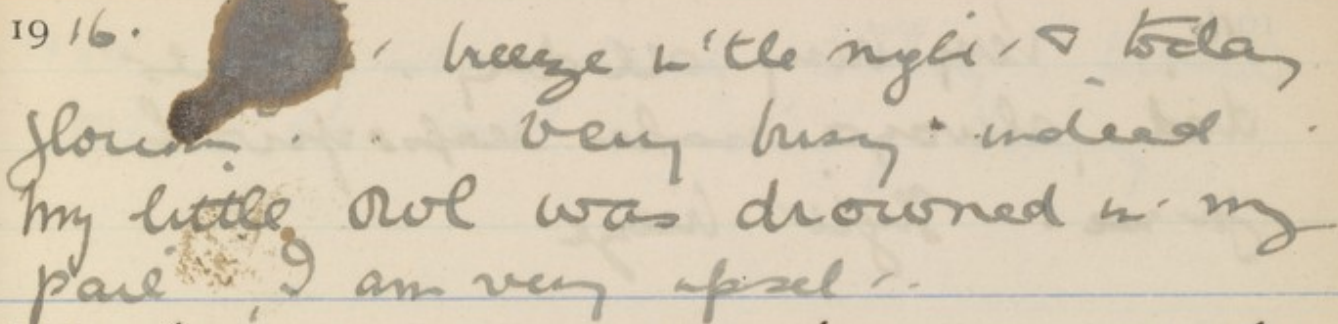 1916. breeze in the night & today
glorious. very busy indeed.
My little owl was drowned in my
pail. I am very upset.